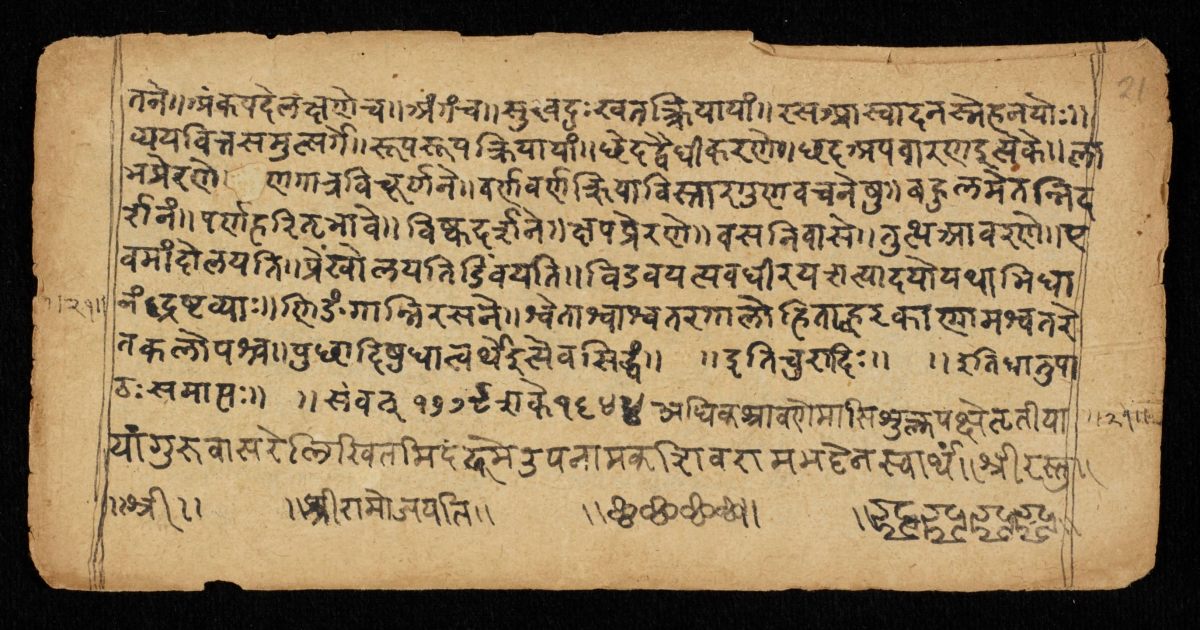 तने॥अंकपदेलक्षणेच॥अंगंच॥सुखदुःखतत्क्रियायां॥रसआस्वादनस्नेहनयोः॥
व्ययवित्तसमुत्सर्गे॥रूपरूपक्रियायां॥छेदद्वैधीकरणे॥छदअपवारणइत्येके॥ला
भप्रेरणे॥ णगात्रविचूर्णने॥वर्णवर्णक्रियाविस्तारगुणवचनेषु॥बहुलमेतन्निद
र्शनं॥पर्णहरितभावे॥विष्कदर्शने॥क्षपप्रेरणे॥वसनिवासे॥तुत्थआवरणे॥ए
वमांदोलयति॥प्रेंखोलयतिडिंवयति॥विडवयत्यवधीरयत्यादयोयथाभिधा
नंद्रष्टव्याः॥णिङंगान्निरसने॥श्वेताश्वाश्वतरगालोहिताह्वरकाणामश्वतरे
तकलोपश्च॥पुछादिषुधात्वर्थेइत्येवसिद्धं॥ ॥इतिचुरादिः॥ ॥इतिधातुपा
ठःसमाप्तः॥ ॥संवत् १७७९ शके१६४४ अधिकश्रावणेमासिशुक्लपक्षेतृतीया
यांगुरूवासरेलिखितमिदं उपनामक स्वार्थं॥श्रीरस्तु॥
॥श्री॥ ॥श्रीरामोजयति॥ ॥छ॥
21
॥२१॥
॥२१॥